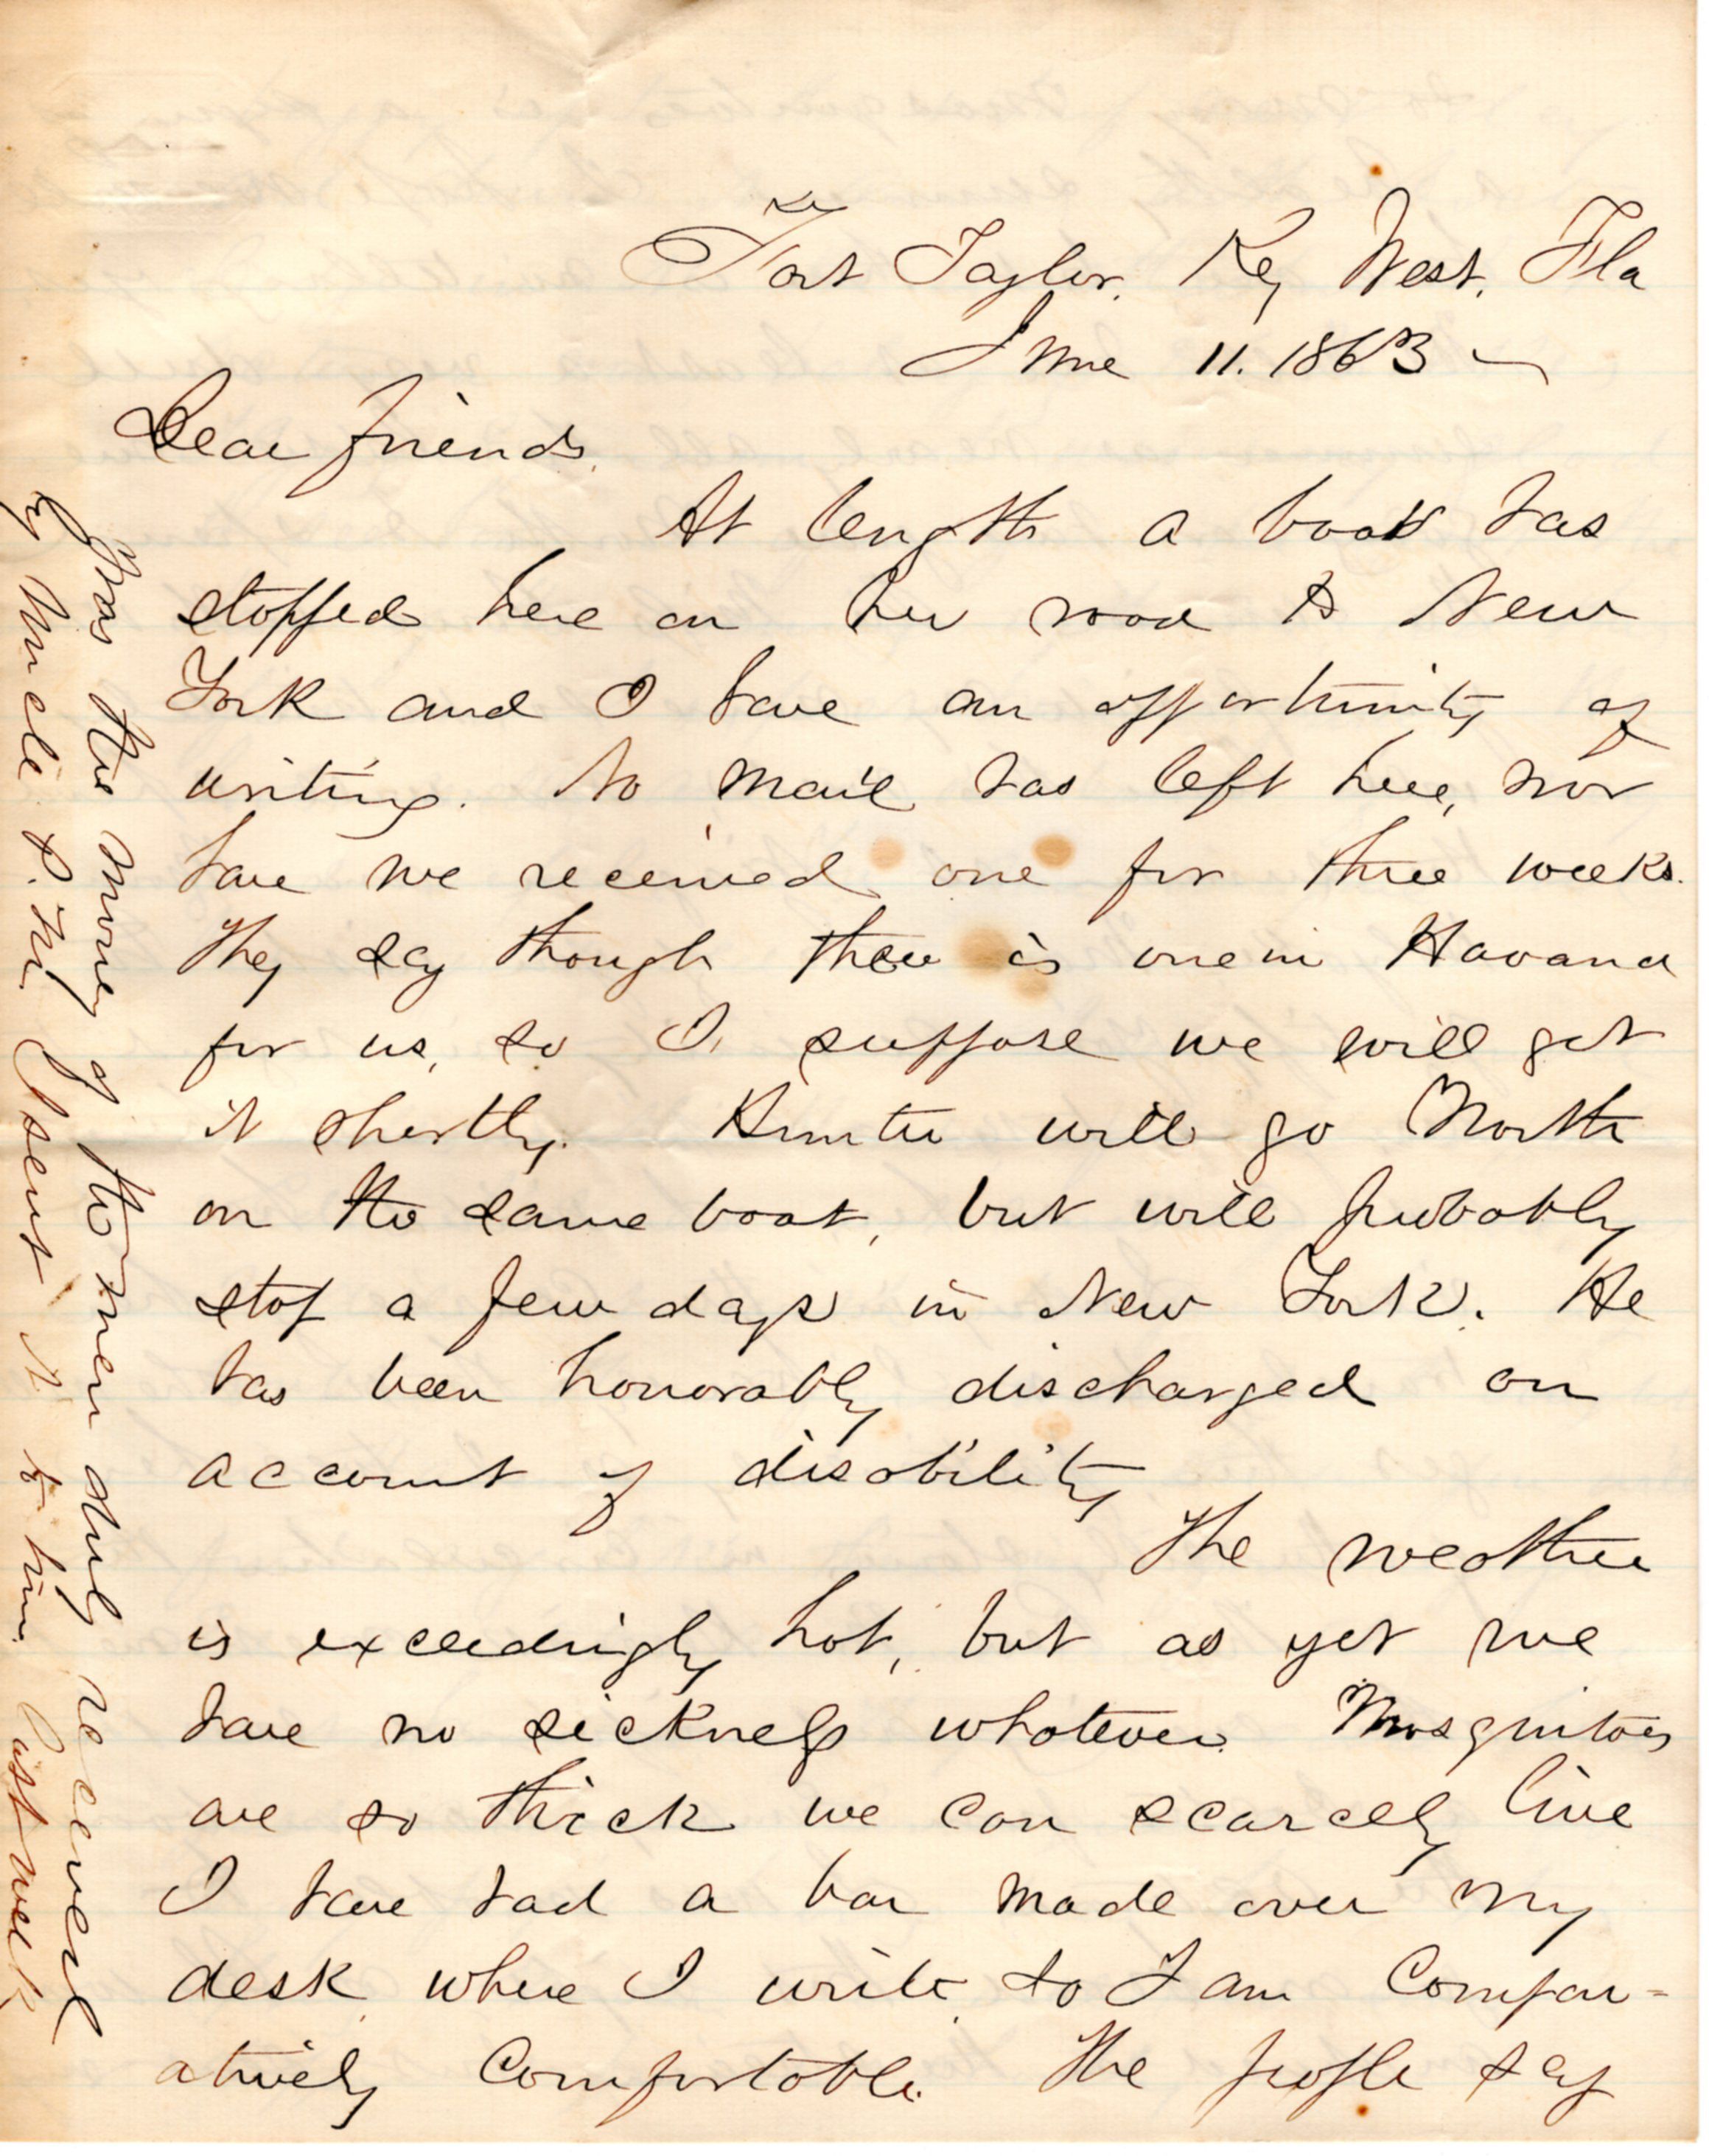 Fort Taylor. Key West, Fla
June 11. 1863
Dear friends.
At length a boat has
stopped here on her road to New
York and I have an opportunity of
writing. No mail has left here, nor
have we received one for three weeks.
They say though there is one in Havana
for us, so I suppose we will get
it shortly. Hunter will go North
on the same boat, but will probably
stop a few days in New York. He
has been honorably discharged on
account of disability
The weather
is exceedingly hot, but as yet we
have no sickness whatever. Mosquitoes
are so thick we can scarcely live
I have had a bar made over my
desk where I write, so I am Compar-
atively Comfortable. The people say
Was the money of the men duly received
by Uncle P. M. I sent it to him last week